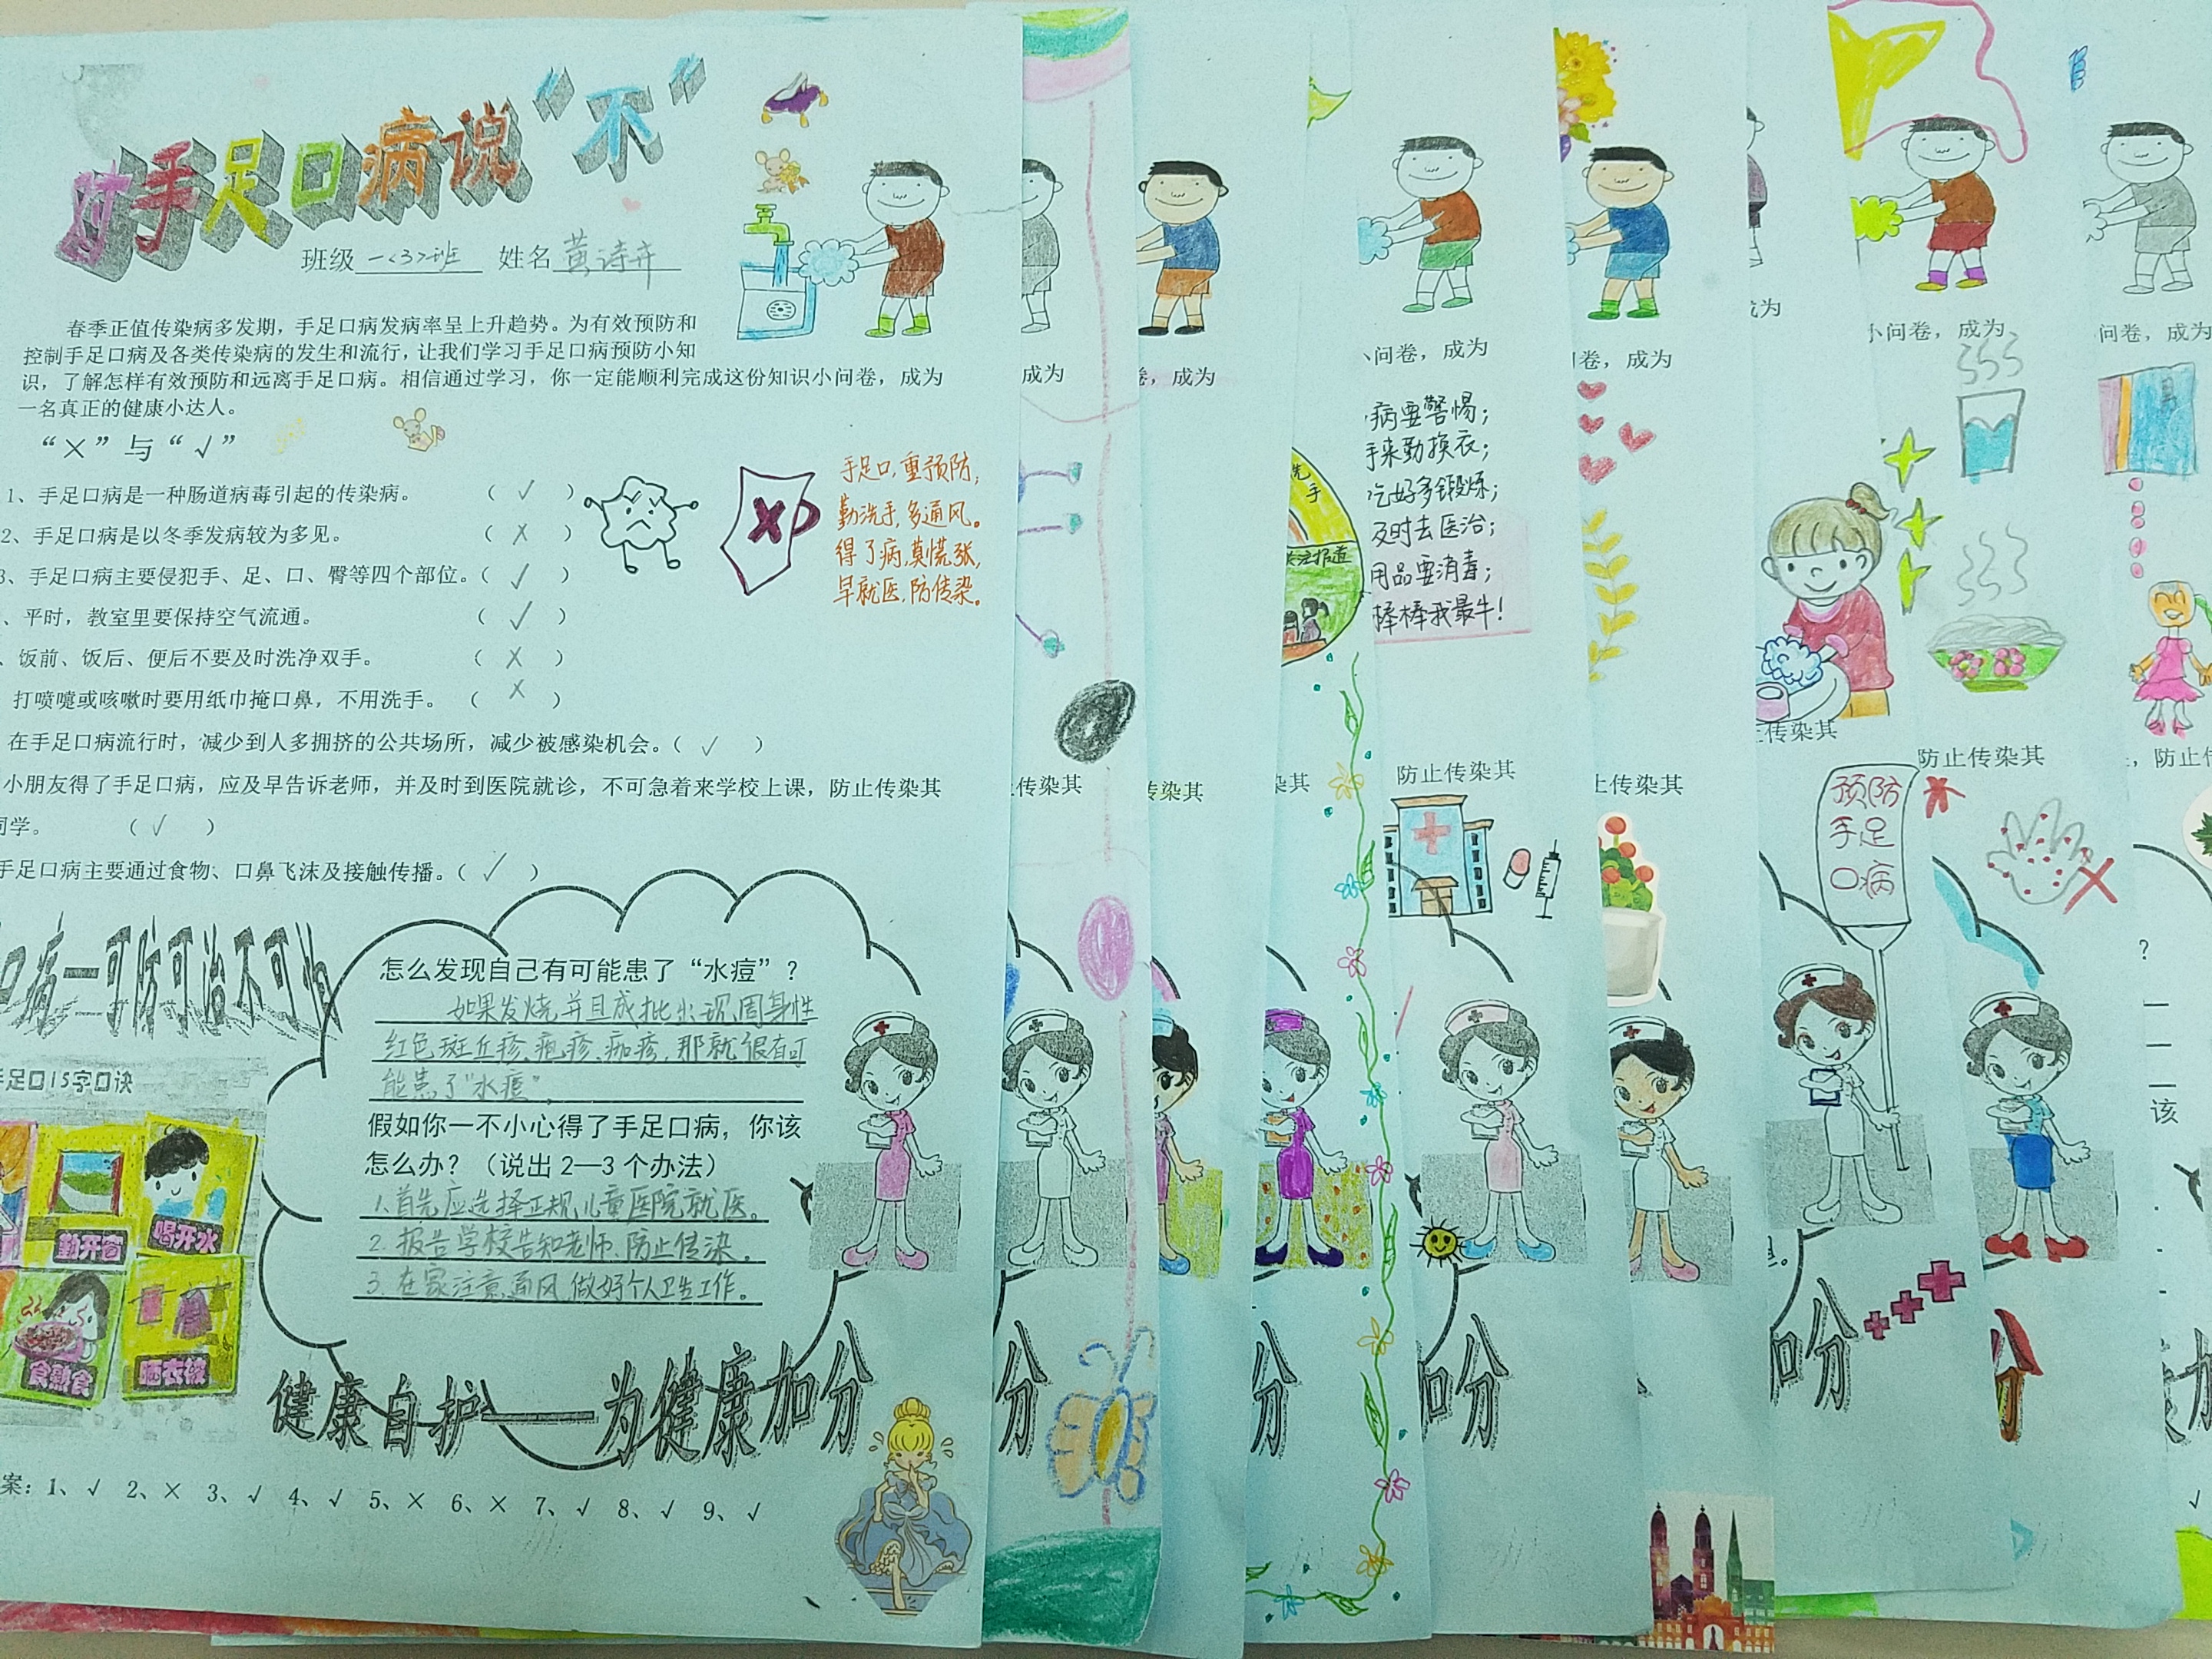 对手足口病说“不”
班级 一<3>班 姓名 黄诗卉
春季正值传染病多发期，手足口病发病率呈上升趋势。为有效预防和
控制手足口病及各类传染病的发生和流行，让我们学习手足口病预防小知
识，了解怎样有效预防和远离手足口病。相信通过学习，你一定能顺利完成这份知识小问卷，成为
一名真正的健康小达人。
“×”与“√”
1、手足口病是一种肠道病毒引起的传染病。 （ √ ）
2、手足口病是以冬季发病较为多见。 （ × ）
3、手足口病主要侵犯手、足、口、臀等四个部位。（ √ ）
、平时，教室里要保持空气流通。 （ √ ）
、饭前、饭后、便后不要及时洗净双手。 （ × ）
打喷嚏或咳嗽时要用纸巾掩口鼻，不用洗手。 （ × ）
在手足口病流行时，减少到人多拥挤的公共场所，减少被感染机会。（ √ ）
小朋友得了手足口病，应及早告诉老师，并及时到医院就诊，不可急着来学校上课，防止传染其
同学。 （ √ ）
手足口病主要通过食物、口鼻飞沫及接触传播。（ √ ）
手足口，重预防，
勤洗手，多通风。
得了病，莫慌张，
早就医，防传染。
口病—可防可治不可怕
手足口15字口诀
勤开窗
喝开水
食熟食
晒衣被
怎么发现自己有可能患了“水痘”？
如果发烧并且成批出现周身性
红色斑丘疹、疱疹、痂疹，那就很有可
能患了“水痘”。
假如你一不小心得了手足口病，你该
怎么办？（说出 2—3 个办法）
1.首先应选择正规儿童医院就医。
2.报告学校告知老师，防止传染。
3.在家注意通风，做好个人卫生工作。
健康自护——为健康加分
案：1、√ 2、× 3、√ 4、√ 5、× 6、× 7、√ 8、√ 9、√
成为
止传染其
分
卷，成为
传染其
洗
手
关注报道
染其
分
小问卷，成为
病要警惕；
手来勤换衣；
吃好多锻炼；
及时去医治；
用品要消毒；
棒棒我最牛！
防止传染其
加分
问卷，成为
止传染其
成为
止传染其
预防
手足
口病
加分
小问卷，成为
防止传染其
问卷，成为
，防止传
？
该
加
√